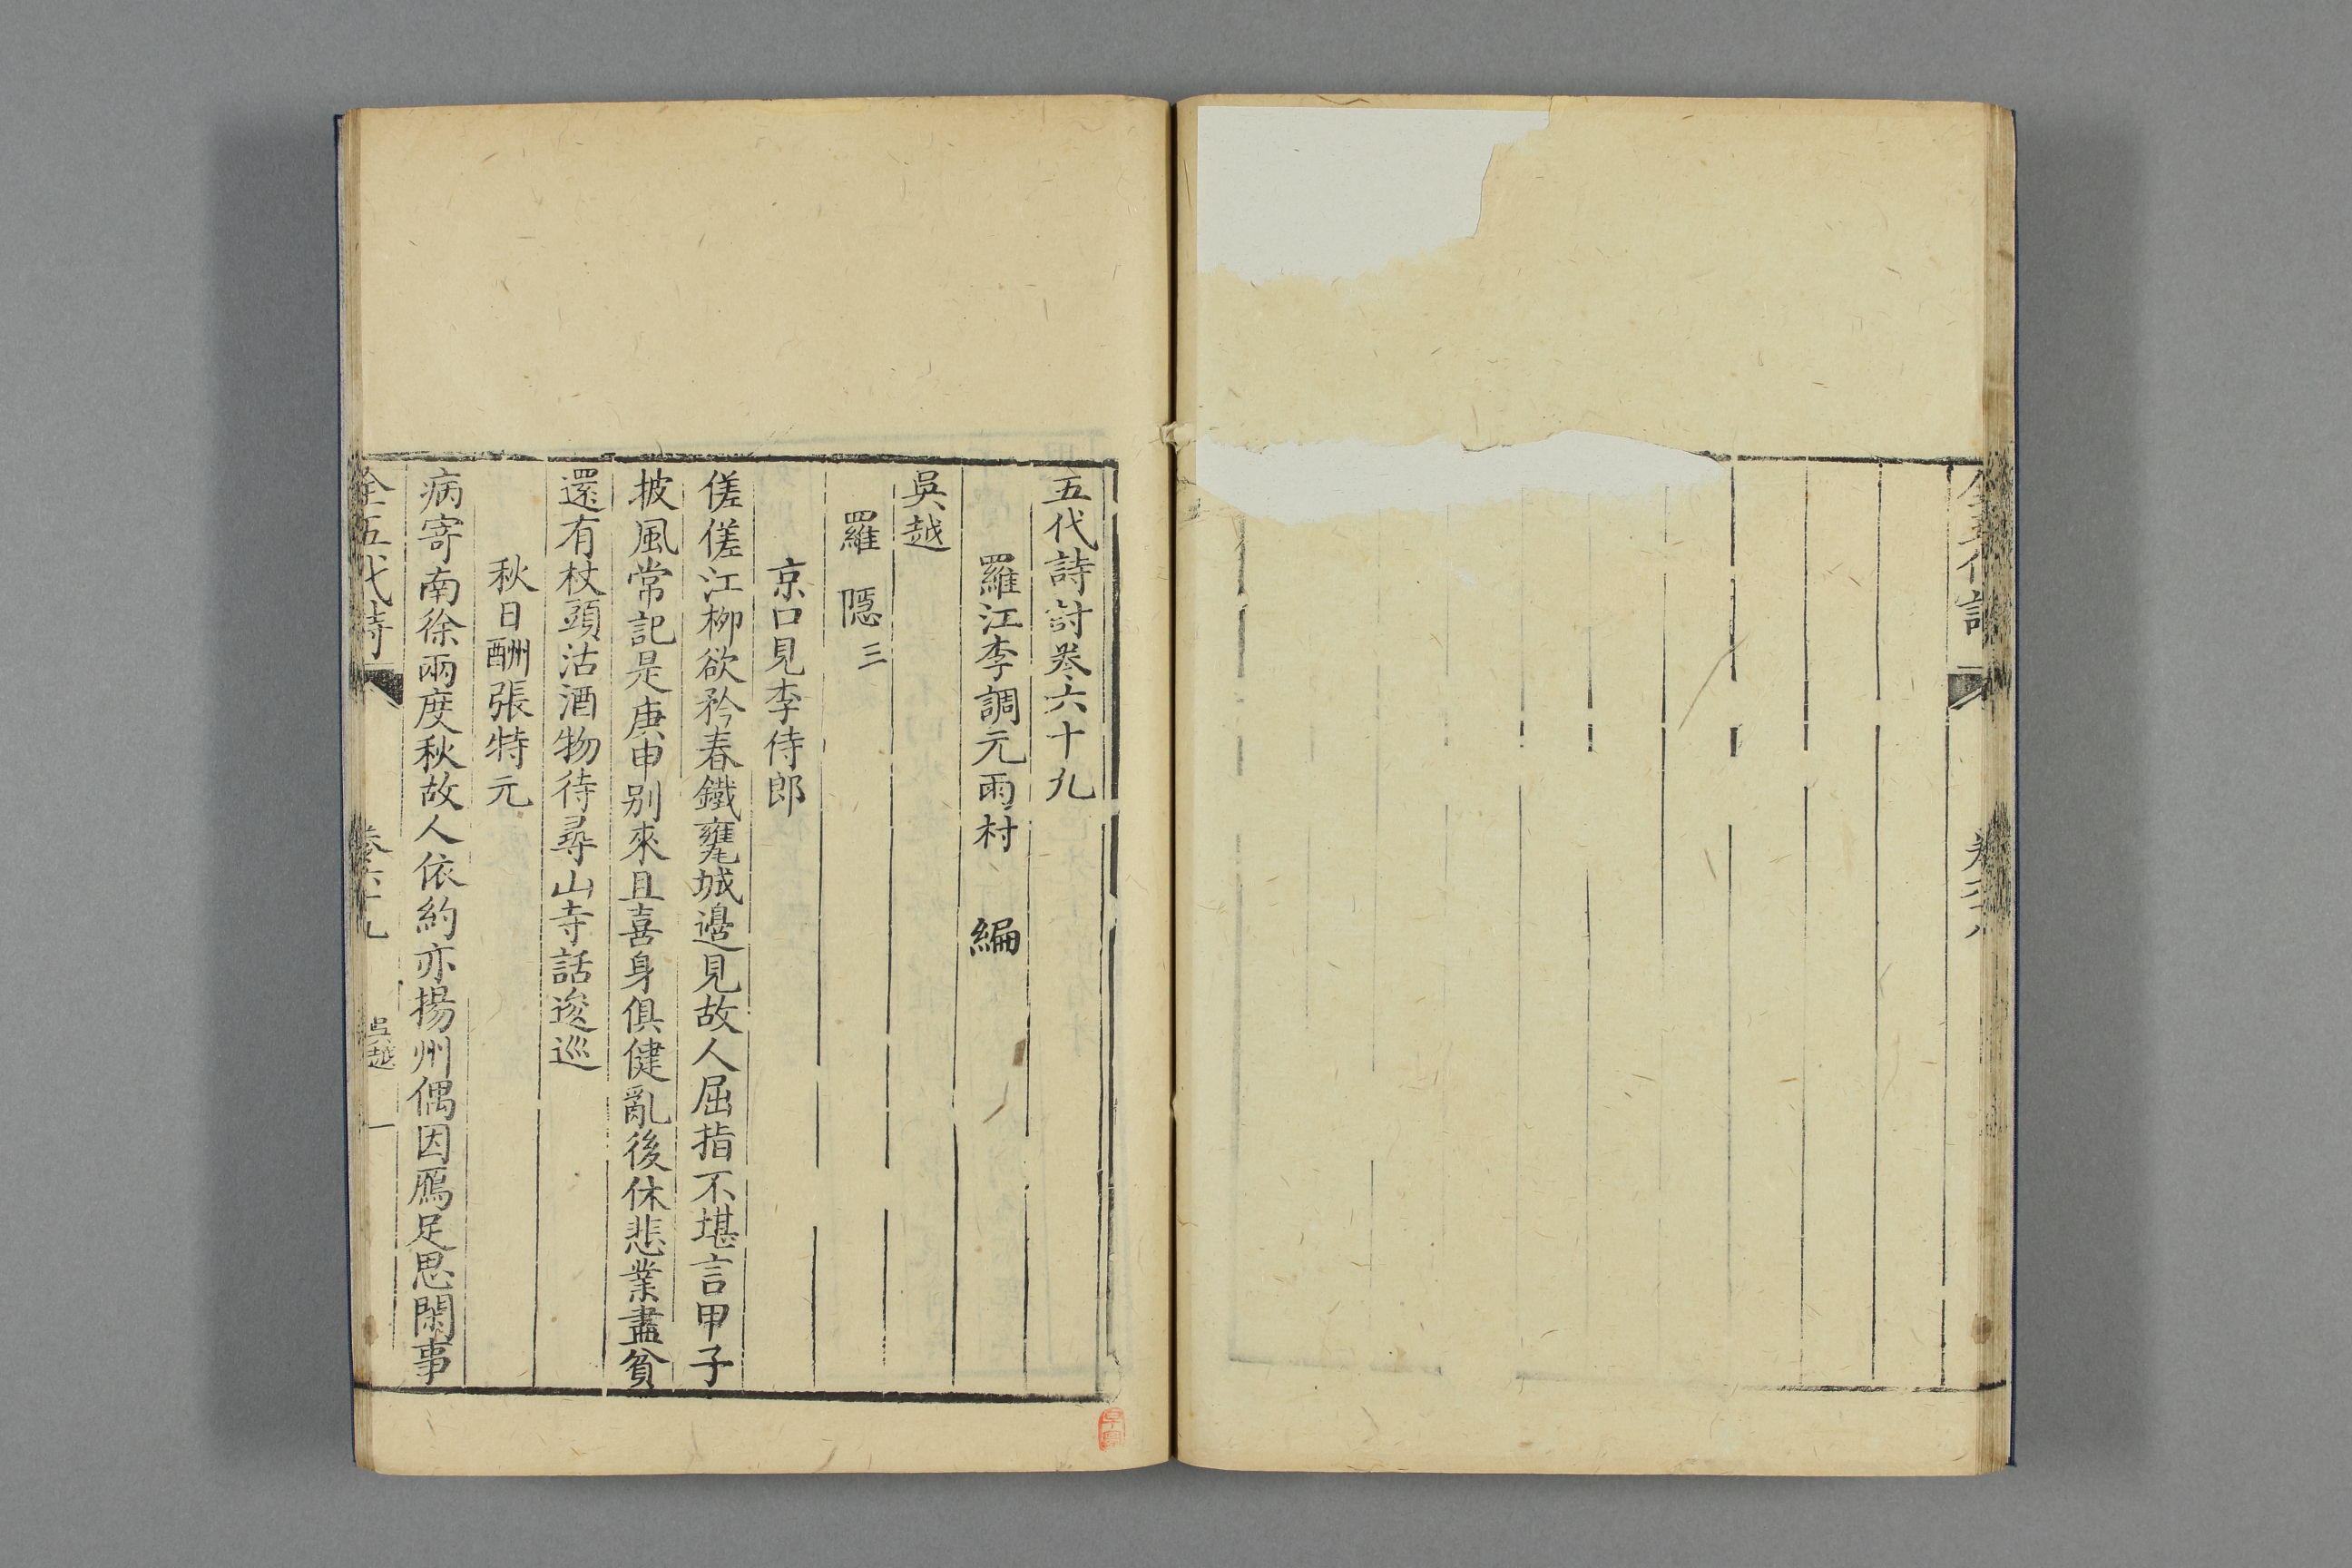 全五代詩
卷六十八
五代詩討卷六十九
羅江李調元雨村 編
吳越
羅 隱 三
京口見李侍郎
傞傞江柳欲矜春鐵甕城邉見故人屈指不堪言甲子
披風常記是庚申别來且喜身俱健亂後休悲業盡貧
還有杖頭沽酒物待尋山寺話逡巡
秋日酬張特元
病寄南徐兩度秋故人依約亦揚州偶因鴈足思閑事
全五代詩
卷六十九
吳越
一